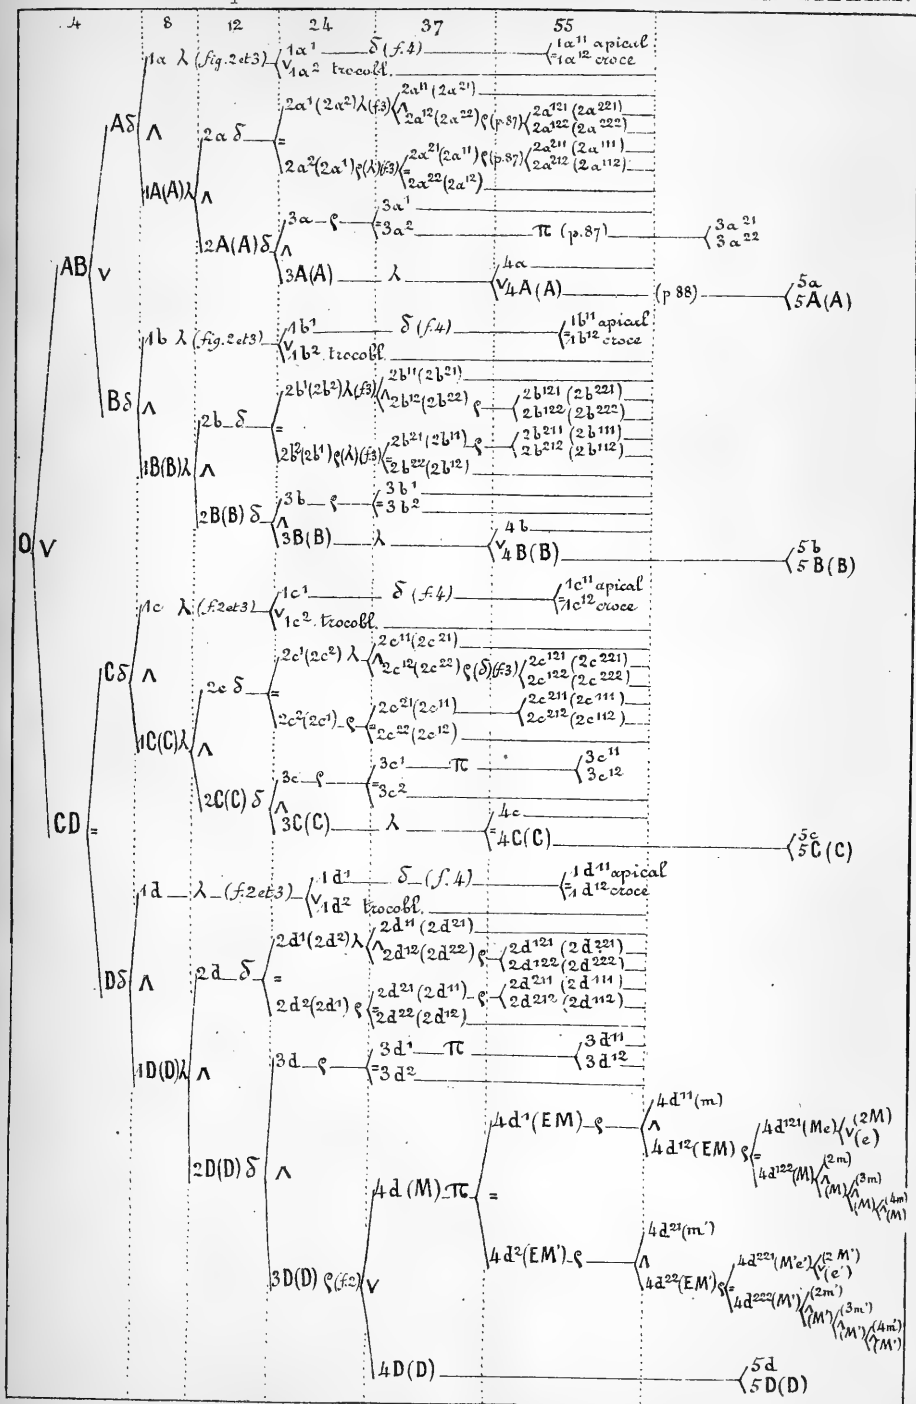 4 8 12 24 37 55
1a λ (fig. 2 et 3) 1a¹ δ (f. 4) 1a¹¹ apical
= 1a¹² croce
v 1a² trocobl.
Aδ Λ 2a δ = 2a¹ (2a²) λ (f.3) 2a¹¹ (2a²¹)
Λ 2a¹² (2a²²) ρ (p. 87) 2a¹²¹ (2a²²¹)
2a¹²² (2a²²²)
2a² (2a¹) ρ (λ) (f.3) 2a²¹ (2a¹¹) ρ (p. 87) 2a²¹¹ (2a¹¹¹)
2a²¹² (2a¹¹²)
= 2a²² (2a¹²)
1A(A) λ Λ
2A(A) δ Λ 3a ρ 3a¹
= 3a² π (p. 87) 3a²¹
3a²²
3A(A) λ 4a
v 4A(A) (p 88) 5a
5A(A)
AB v
1b λ (fig. 2 et 3) 1b¹ δ (f. 4) 1b¹¹ apical
= 1b¹² croce
v 1b² trocobl.
Bδ Λ 2b δ = 2b¹ (2b²) λ (f.3) 2b¹¹ (2b²¹)
Λ 2b¹² (2b²²) ρ 2b¹²¹ (2b²²¹)
2b¹²² (2b²²²)
2b² (2b¹) ρ (λ) (f.3) 2b²¹ (2b¹¹) ρ 2b²¹¹ (2b¹¹¹)
2b²¹² (2b¹¹²)
= 2b²² (2b¹²)
1B(B) λ Λ
2B(B) δ Λ 3b ρ 3b¹
= 3b²
3B(B) λ 4b
v 4B(B) 5b
5B(B)
O v
1c λ (f. 2 et 3) 1c¹ δ (f. 4) 1c¹¹ apical
= 1c¹² croce
v 1c² trocobl.
Cδ Λ 2c δ = 2c¹ (2c²) λ 2c¹¹ (2c²¹)
Λ 2c¹² (2c²²) ρ (δ) (f.3) 2c¹²¹ (2c²²¹)
2c¹²² (2c²²²)
2c² (2c¹) ρ 2c²¹ (2c¹¹) 2c²¹¹ (2c¹¹¹)
2c²¹² (2c¹¹²)
= 2c²² (2c¹²)
1C(C) λ Λ
2C(C) δ Λ 3c ρ 3c¹ π 3c¹¹
3c¹²
= 3c²
3C(C) λ 4c
= 4C(C) 5c
5C(C)
CD =
1d λ (f. 2 et 3) 1d¹ δ (f. 4) 1d¹¹ apical
= 1d¹² croce
v 1d² trocobl.
Dδ Λ 2d δ = 2d¹ (2d²) λ 2d¹¹ (2d²¹)
Λ 2d¹² (2d²²) ρ 2d¹²¹ (2d²²¹)
2d¹²² (2d²²²)
2d² (2d¹) ρ 2d²¹ (2d¹¹) ρ 2d²¹¹ (2d¹¹¹)
2d²¹² (2d¹¹²)
= 2d²² (2d¹²)
1D(D) λ Λ
2D(D) δ Λ 3d ρ 3d¹ π 3d¹¹
3d¹²
= 3d²
4d¹ (EM) ρ Λ 4d¹¹ (m)
4d¹² (EM) ρ = 4d¹²¹ (Me) v (2M)
(e)
4d¹²² (M) Λ (2m)
(M) Λ (3m)
(M) Λ (4m)
(M)
4d (M) π =
4d² (EM') ρ Λ 4d²¹ (m')
4d²² (EM') ρ = 4d²²¹ (M'e') v (2M')
(e')
4d²²² (M') Λ (2m')
(M') Λ (3m')
(M') Λ (4m')
(M')
3D(D) ρ (f.2) v
4D(D) 5d
5D(D)